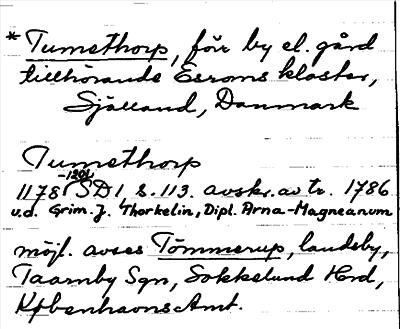 * Tumethorp, för by el. gård
tillhörande Esroms kloster,
Själland, Danmark
Tumethorp
1178-1201 SD 1 s. 113. avskr. av tr. 1786
u.d. Grim. J. Thorkelin, Dipl. Arna-Magneanum
möjl. avses Tömmerup, landsby,
Taarnby Sgn, Sokkelund Hrd,
Københavns Amt.